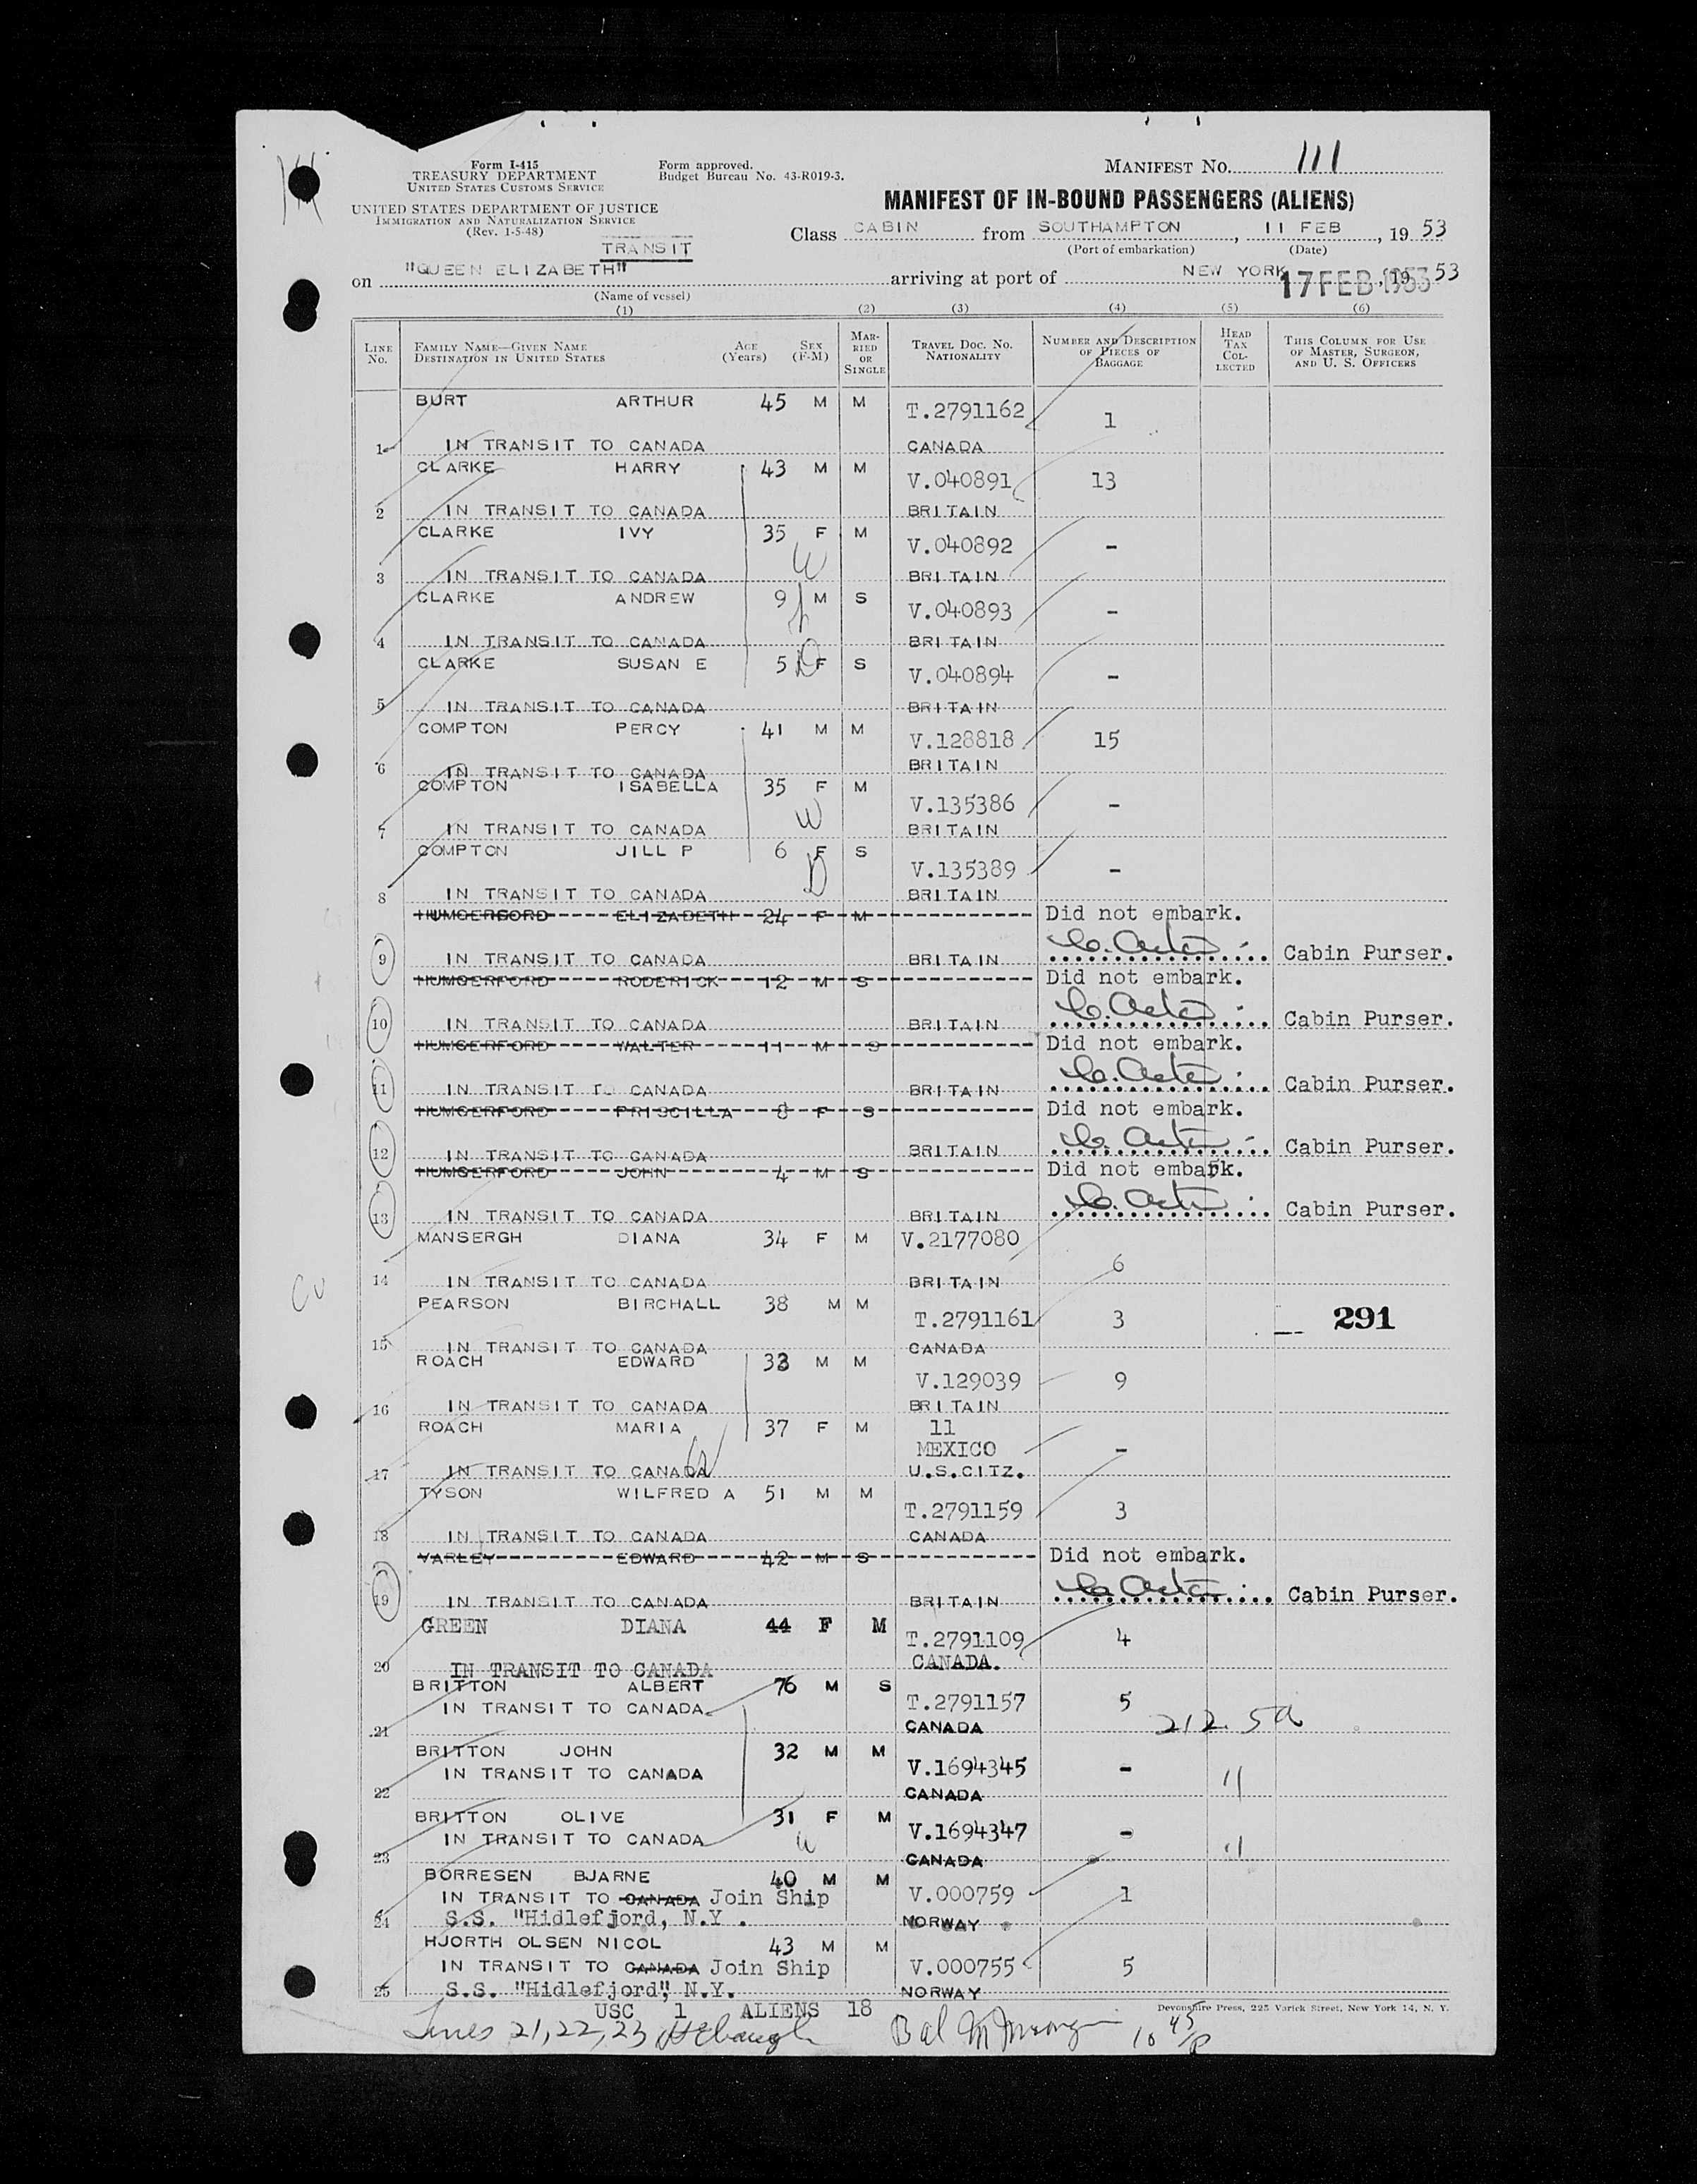 Form I-415
TREASURY DEPARTMENT
UNITED STATES CUSTOMS SERVICE
UNITED STATES DEPARTMENT OF JUSTICE
IMMIGRATION AND NATURALIZATION SERVICE
(Rev. 1-5-48)
Form approved.
Budget Bureau No. 43-R019-3.
MANIFEST NO. 111
MANIFEST OF IN-BOUND PASSENGERS (ALIENS)
Class CABIN from SOUTHAMPTON, 11 FEB, 19 53
(Port of embarkation) (Date)
TRANSIT
on "QUEEN ELIZABETH" arriving at port of NEW YORK 17 FEB 1953, 19 53
(Name of vessel)
(1) (2) (3) (4) (5) (6)
LINE No. FAMILY NAME—GIVEN NAME DESTINATION IN UNITED STATES AGE (Years) SEX (F-M) MARRIED OR SINGLE TRAVEL DOC. NO. NATIONALITY NUMBER AND DESCRIPTION OF PIECES OF BAGGAGE HEAD TAX COLLECTED THIS COLUMN FOR USE OF MASTER, SURGEON, AND U. S. OFFICERS
BURT ARTHUR 45 M M T.2791162 1
1 IN TRANSIT TO CANADA CANADA
CLARKE HARRY 43 M M V.040891 13
2 IN TRANSIT TO CANADA BRITAIN
CLARKE IVY 35 F M V.040892 -
W
3 IN TRANSIT TO CANADA BRITAIN
CLARKE ANDREW 9 M S V.040893 -
4 IN TRANSIT TO CANADA BRITAIN
CLARKE SUSAN E 5 D F S V.040894 -
5 IN TRANSIT TO CANADA BRITAIN
COMPTON PERCY 41 M M V.128818 15
6 IN TRANSIT TO CANADA BRITAIN
COMPTON ISABELLA 35 F M V.135386 -
W
7 IN TRANSIT TO CANADA BRITAIN
COMPTON JILL P 6 F S V.135389 -
D
8 IN TRANSIT TO CANADA BRITAIN
HUMGERGORD ELIZABETH 24 F M Did not embark.
9 IN TRANSIT TO CANADA BRITAIN Cabin Purser.
HUMGERFORD RODERICK 12 M S Did not embark.
10 IN TRANSIT TO CANADA BRITAIN Cabin Purser.
HUMGERFORD WALTER 11 M S Did not embark.
11 IN TRANSIT TO CANADA BRITAIN Cabin Purser.
HUMGERFORD PRISCILLA 8 F S Did not embark.
12 IN TRANSIT TO CANADA BRITAIN Cabin Purser.
HUMGERFORD JOHN 4 M S Did not embark.
13 IN TRANSIT TO CANADA BRITAIN Cabin Purser.
MANSERGH DIANA 34 F M V.2177080 6
14 IN TRANSIT TO CANADA BRITAIN
PEARSON BIRCHALL 38 M M T.2791161 3 291
15 IN TRANSIT TO CANADA CANADA
ROACH EDWARD 33 M M V.129039 9
16 IN TRANSIT TO CANADA BRITAIN
ROACH MARIA 37 F M 11
MEXICO -
W
17 IN TRANSIT TO CANADA U.S.CITZ.
TYSON WILFRED A 51 M M T.2791159 3
18 IN TRANSIT TO CANADA CANADA
VARLEY EDWARD 42 M S Did not embark.
19 IN TRANSIT TO CANADA BRITAIN Cabin Purser.
GREEN DIANA 44 F M T.2791109 4
20 IN TRANSIT TO CANADA CANADA.
BRITTON ALBERT 76 M S T.2791157 5
IN TRANSIT TO CANADA
21 CANADA 212.5a
BRITTON JOHN 32 M M V.1694345 -
IN TRANSIT TO CANADA 11
22 CANADA
BRITTON OLIVE 31 F M V.1694347 -
IN TRANSIT TO CANADA W 11
23 CANADA
BORRESEN BJARNE 40 M M V.000759 1
IN TRANSIT TO CANADA Join Ship
24 S.S. "Hidlefjord, N.Y. NORWAY
HJORTH OLSEN NICOL 43 M M V.000755 5
IN TRANSIT TO CANADA Join Ship
25 S.S. "Hidlefjord", N.Y. NORWAY
USC 1 ALIENS 18
Devonshire Press, 225 Varick Street, New York 14, N. Y.
Lines 21,22,23
Bal
10 45/P